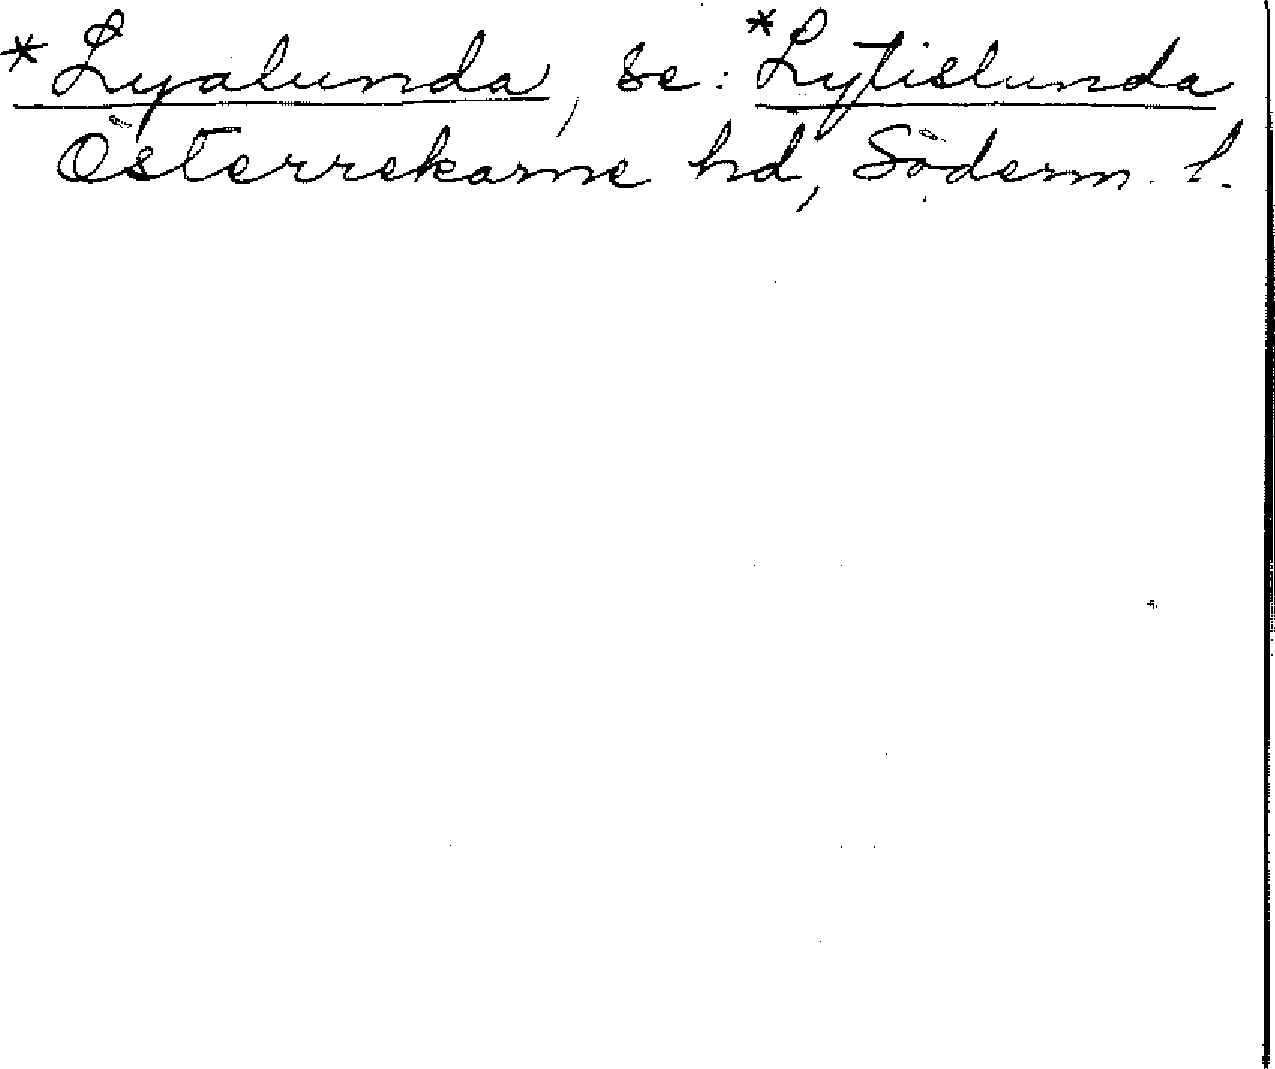 *Lyalunda, se: *Lytislunda
Österrekarne hd, Söderm. l.